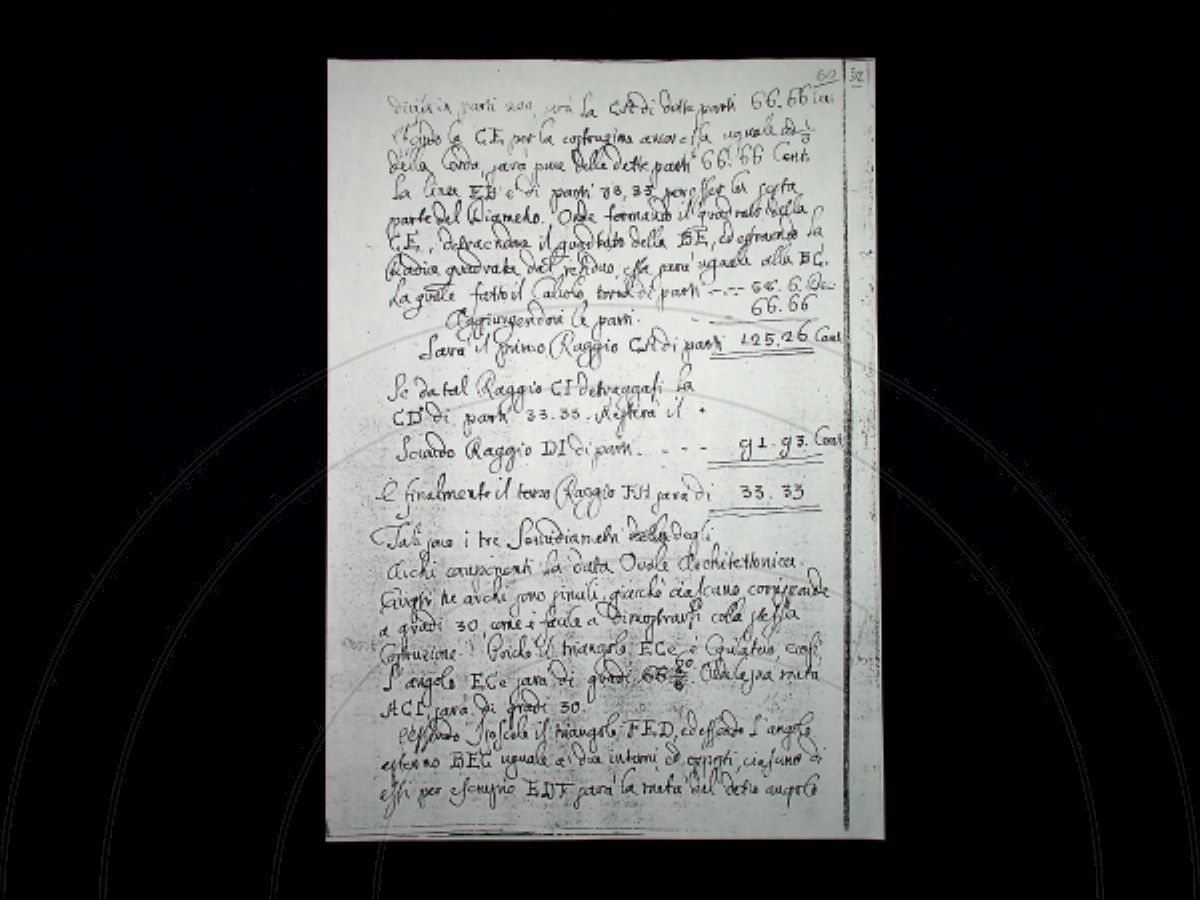 60 52
divisa in parti 200, sarà la CA di dette parti 66.66 Cen
Essendo la CE per la costruzione ancor essa uguale ad 1/3
della Corda, sarà pure delle dette parti 66.66 Cent.
La linea EB è di parti 33.33 per esser la sesta
parte del Diametro. Onde formando il quadrato della
CE, detraendone il quadrato della BE, ed estraendo la
Radice quadrata dal residuo, essa sarà uguale alla BC.
La quale fatto il Calcolo, torna di parti --- 58.6.
66.66
Aggiungendovi le parti.
Sarà il primo Raggio CA di parti 125.26 Cent
Se da tal Raggio CI detraggasi la
CD di parti 33.33. Resterà il
Secondo Raggio DI di parti. - - - 91.93. Cent
E finalmente il terzo Raggio FH sarà di 33.33
Tali sono i tre Semidiametri degli
Archi componenti la data Ovale Architettonica.
Questi tre archi sono simili, giacchè ciascuno corrisponde
a gradi 30, come è facile a dimostrarsi colla stessa
Costruzione. Poichè il triangolo ECe è Equilatero, così
l'angolo ECe sarà di gradi 60. Onde la sua metà
ACI sarà di gradi 30.
Essendo Isoscele il triangolo FED, ed essendo l'angolo
esterno BEC uguale a' due interni, ed opposti, ciascuno di
essi per esempio EDF sarà la metà del detto angolo